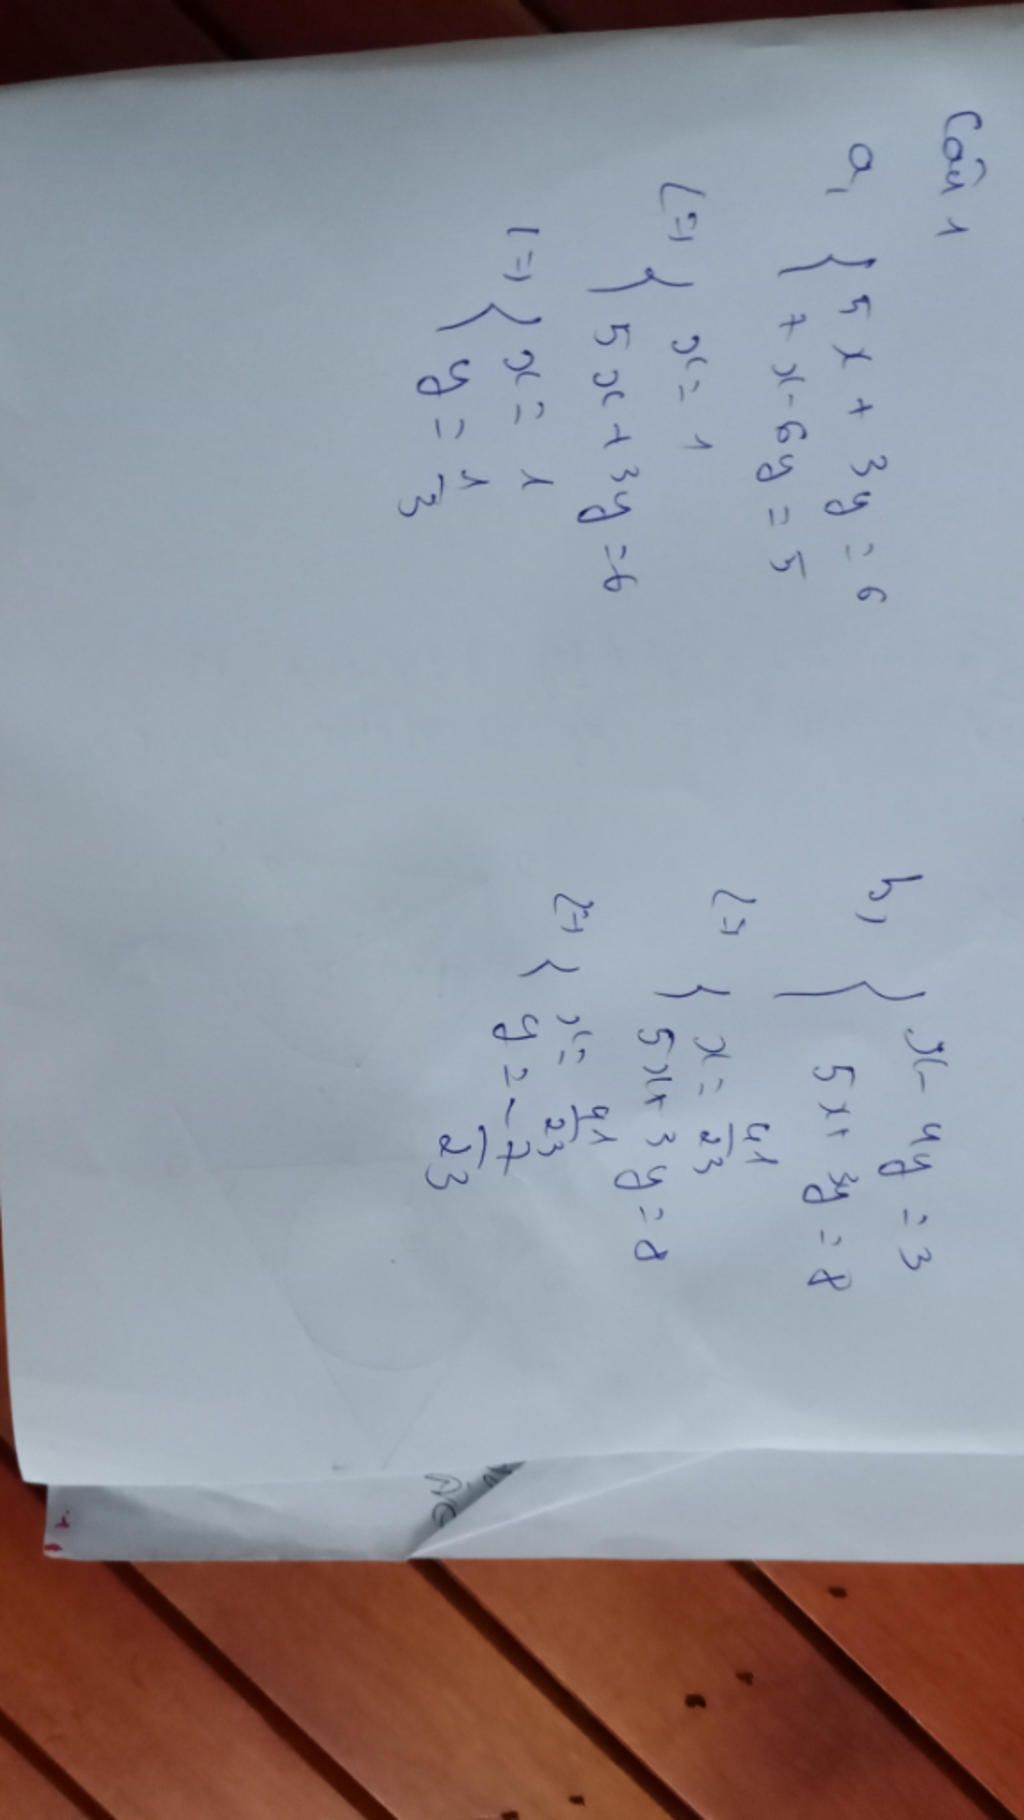 Câu 1
a, { 5x + 3y = 6
7x - 6y = 5
(=) { x = 1
5x + 3y = 6
(=) { x = 1
y = 1/3
b, { x - 4y = 3
5x + 3y = 8
(=) { x = 41/23
5x + 3y = 8
(=) { x = 41/23
y = -7/23